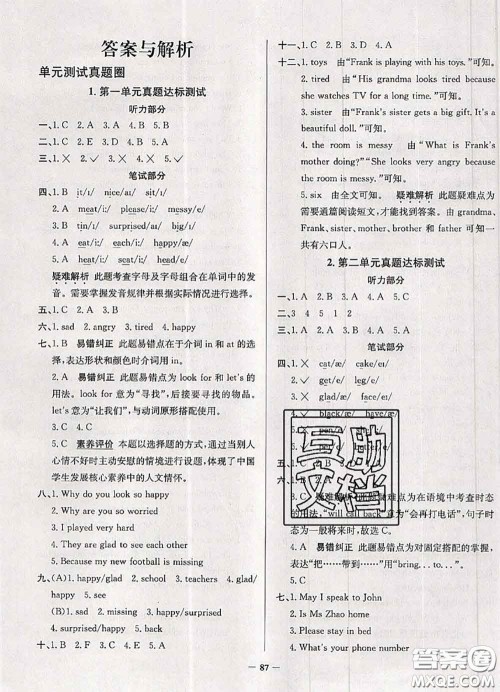 答案与解析
单元测试真题圈
1. 第一单元真题达标测试
听力部分
一、1. C 2. A 3. A 4. B 5. B
三、1. × 2. ✓ 3. × 4. ✓ 5. ✓
笔试部分
四、1. B sit/ɪ/ nice/aɪ/ big/ɪ/
2. A meat/iː/ please/iː/ messy/e/
3. B dinner/ɪ/ tired/aɪ/ trip/ɪ/
4. A eat/iː/ heavy/e/ seat/iː/
5. B heat/iː/ head/e/ seat/iː/
疑难解析 此题考查字母及字母组合在单词中的发
音。需要掌握发音规律并根据实际情况进行选择。
六、1. sad 2. angry 3. tired 4. happy
七、1. B 易错纠正 此题易错点在于介词 in 和 at 的选
择,表达形状和颜色时介词用 in。
2. A 易错纠正 此题易错点在于 look for 和 let's 的
用法。look for 意为“寻找”,后接要寻找的物品。
let's 意为“让我们”,与动词原形搭配使用。
3. C 4. C
5. C 素养评价 本题以选择题的方式,通过当别人
心情不好时主动安慰的情境进行设题,体现了中国
学生发展核心素养中的人文情怀。
八、1. Why do you look so happy
2. Why are you so surprised
3. I played very hard
4. They are glad to see each other
5. Because my new football is missing
九、(A) 1. happy/glad 2. sad 3. teachers 4. glad/
happy 5. see
(B) 1. sad 2. missing 3. happy/surprised 4.
surprised/happy 5. back
十、1. B 2. A 3. B 4. C 5. C
十一、1. C 2. B 3. A 4. D
十二、1. toys 由“Frank is playing with his toys.”可知。
2. tired 由“His grandma looks tired because she
watches TV for a long time.”可知。
3. sister 由“Frank's sister gets a big gift. It's a
beautiful doll.”可知。
4. the room is messy 由“What is Frank's
mother doing?”“She looks very angry because
the room is messy.”可知。
5. six 由全文可知。 疑难解析 此题疑难点为
需要通篇阅读短文,才能找到答案。由 grandma,
Frank, sister, mother, brother 和 father 可知一
共有六口人。
2. 第二单元真题达标测试
听力部分
一、1. B 2. A 3. A 4. A 5. C
二、3 4 5 1 2
笔试部分
四、1. × cat/æ/ cake/eɪ/
2. ✓ get/e/ leg/e/
3. × glad/æ/ face/eɪ/
black/æ/ have/æ/
pen/e/
六、1. B
2. C 疑难解析 此题疑难点为在语境中考查时态
的用法,“will call back”意为“会再打电话”,句中
为一般将来时,故选 C。
4. A 易错纠正 此题易错点为对固定搭配的掌握。
表达“把……带到……”用“bring...to...”。
七、1. May I speak to John
2. Is Ms Zhao home
3. Please stay in bed
4. What's your phone number
互助
文档
— 87 —
答案圈
MXQE.COM